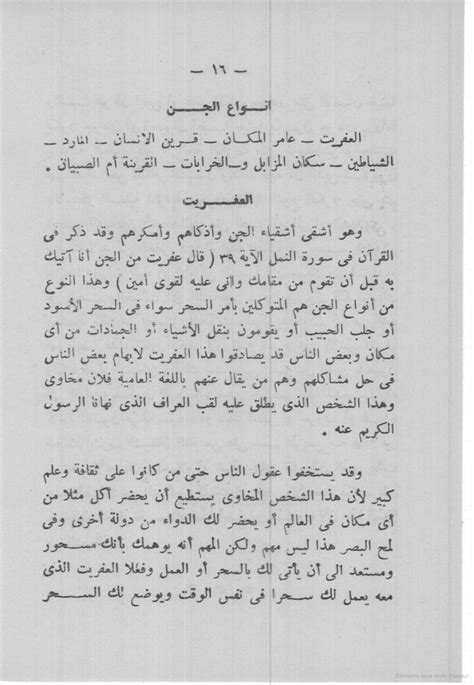 — ١٦ —
انواع الجن
العفريت — عامر المكان — قرين الانسان — المارد —
الشياطين — سكان المزابل والخرابات — القرينة أم الصبيان .
العفريت
وهو أشقى أشقياء الجن وأذكاهم وأمكرهم وقد ذكر فى
القرآن فى سورة النمل الآية ٣٩ ( قال عفريت من الجن أنا آتيك
به قبل أن تقوم من مقامك وانى عليه لقوى أمين ) وهذا النوع
من أنواع الجن هم المتوكلين بأمر السحر سواء فى السحر الأسود
أو جلب الحبيب أو يقومون بنقل الأشياء أو الجمادات من أى
مكان وبعض الناس قد يصادقوا هذا العفريت لايهام بعض الناس
فى حل مشاكلهم وهم من يقال عنهم باللغة العامية فلان مخاوى
وهذا الشخص الذى يطلق عليه لقب العراف الذى نهانا الرسول
الكريم عنه .
وقد يستخفوا عقول الناس حتى من كانوا على ثقافة وعلم
كبير لأن هذا الشخص المخاوى يستطيع أن يحضر أكل مثلا من
أى مكان فى العالم أو يحضر لك الدواء من دولة أخرى وفى
لمح البصر هذا ليس مهم ولكن المهم أنه يوهمك بأنك مسحور
ومستعد الى أن يأتى لك بالسحر أو العمل وفعلا العفريت الذى
معه يعمل لك سحرا فى نفس الوقت ويوضع لك السحر